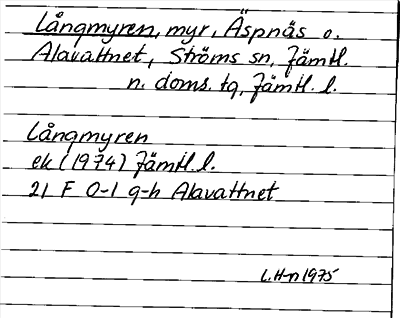 Långmyren, myr, Äspnäs o.
Alavattnet, Ströms sn, Jämtl.
n. doms. tg, Jämtl. l.
Långmyren
ek (1974) Jämtl. l.
21 F 0-1 g-h Alavattnet
L.H-n 1975